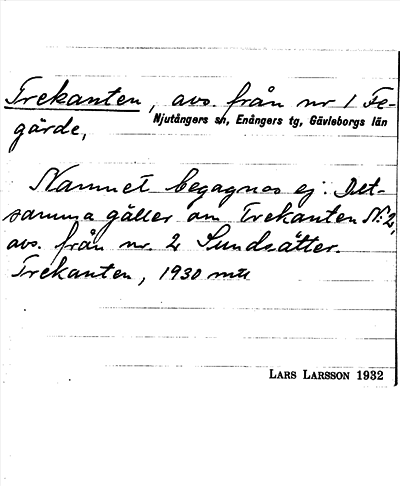 Trekanten, avs. från nr 1 Fe-
Njutångers sn, Enångers tg, Gävleborgs län
gärde,
Namnet begagnas ej. Det-
samma gäller om Trekanten N:2,
avs. från nr. 2 Sundsätter.
Trekanten, 1930 mtl
LARS LARSSON 1932